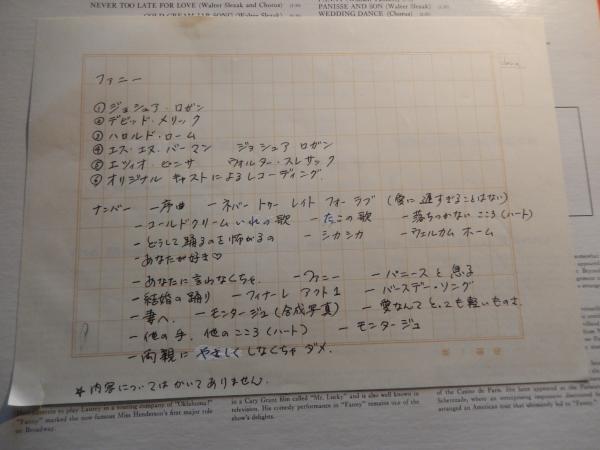 NEVER TOO LATE FOR LOVE (Walter Slezak and Chorus)
PANISSE AND SON (Walter Slezak)
WEDDING DANCE (Chorus)
ファニー
①ジョシュア・ロガン
②デビッド・メリック
③ハロルド・ローム
④エス・エヌ・バーマン ジョシュア ロガン
⑤エツィオ・ピンサ ウォルター・スレザック
⑥オリジナル キャストによるレコーディング.
ナンバー —序曲 —ネバー トゥー レイト フォー ラブ (愛に遅すぎることはない)
—コールドクリームいれの歌 —たこの歌 —落ちつかない こころ(ハート)
—どうして踊るのを怖がるの —シカシカ —ウェルカム ホーム
—あなたが好き♡
—あなたに言わなくちゃ. —ファニー —パニースと息子
—結婚の踊り —フィナーレ アクト1 —バースデー・ソング
—妻へ. —モンタージュ(合成写真) —愛なんてとっても軽いものさ.
—他の手, 他のこころ(ハート) —モンタージュ
—両親に やさしく しなくちゃ ダメ.
*内容についてはかいてありません.
to play Laurey in a touring company of "Oklahoma!"
"Fanny" marked the now famous Miss Henderson's first major role
on Broadway.
in a Cary Grant film called "Mr. Lucky" and is also well known in
television. His comedy performance in "Fanny" remains one of the
show's delights.
of the Casino de Paris. She later appeared at the
Scherezade, where an enterprising impresario discovered
arranged an American tour that ultimately led to "Fanny."